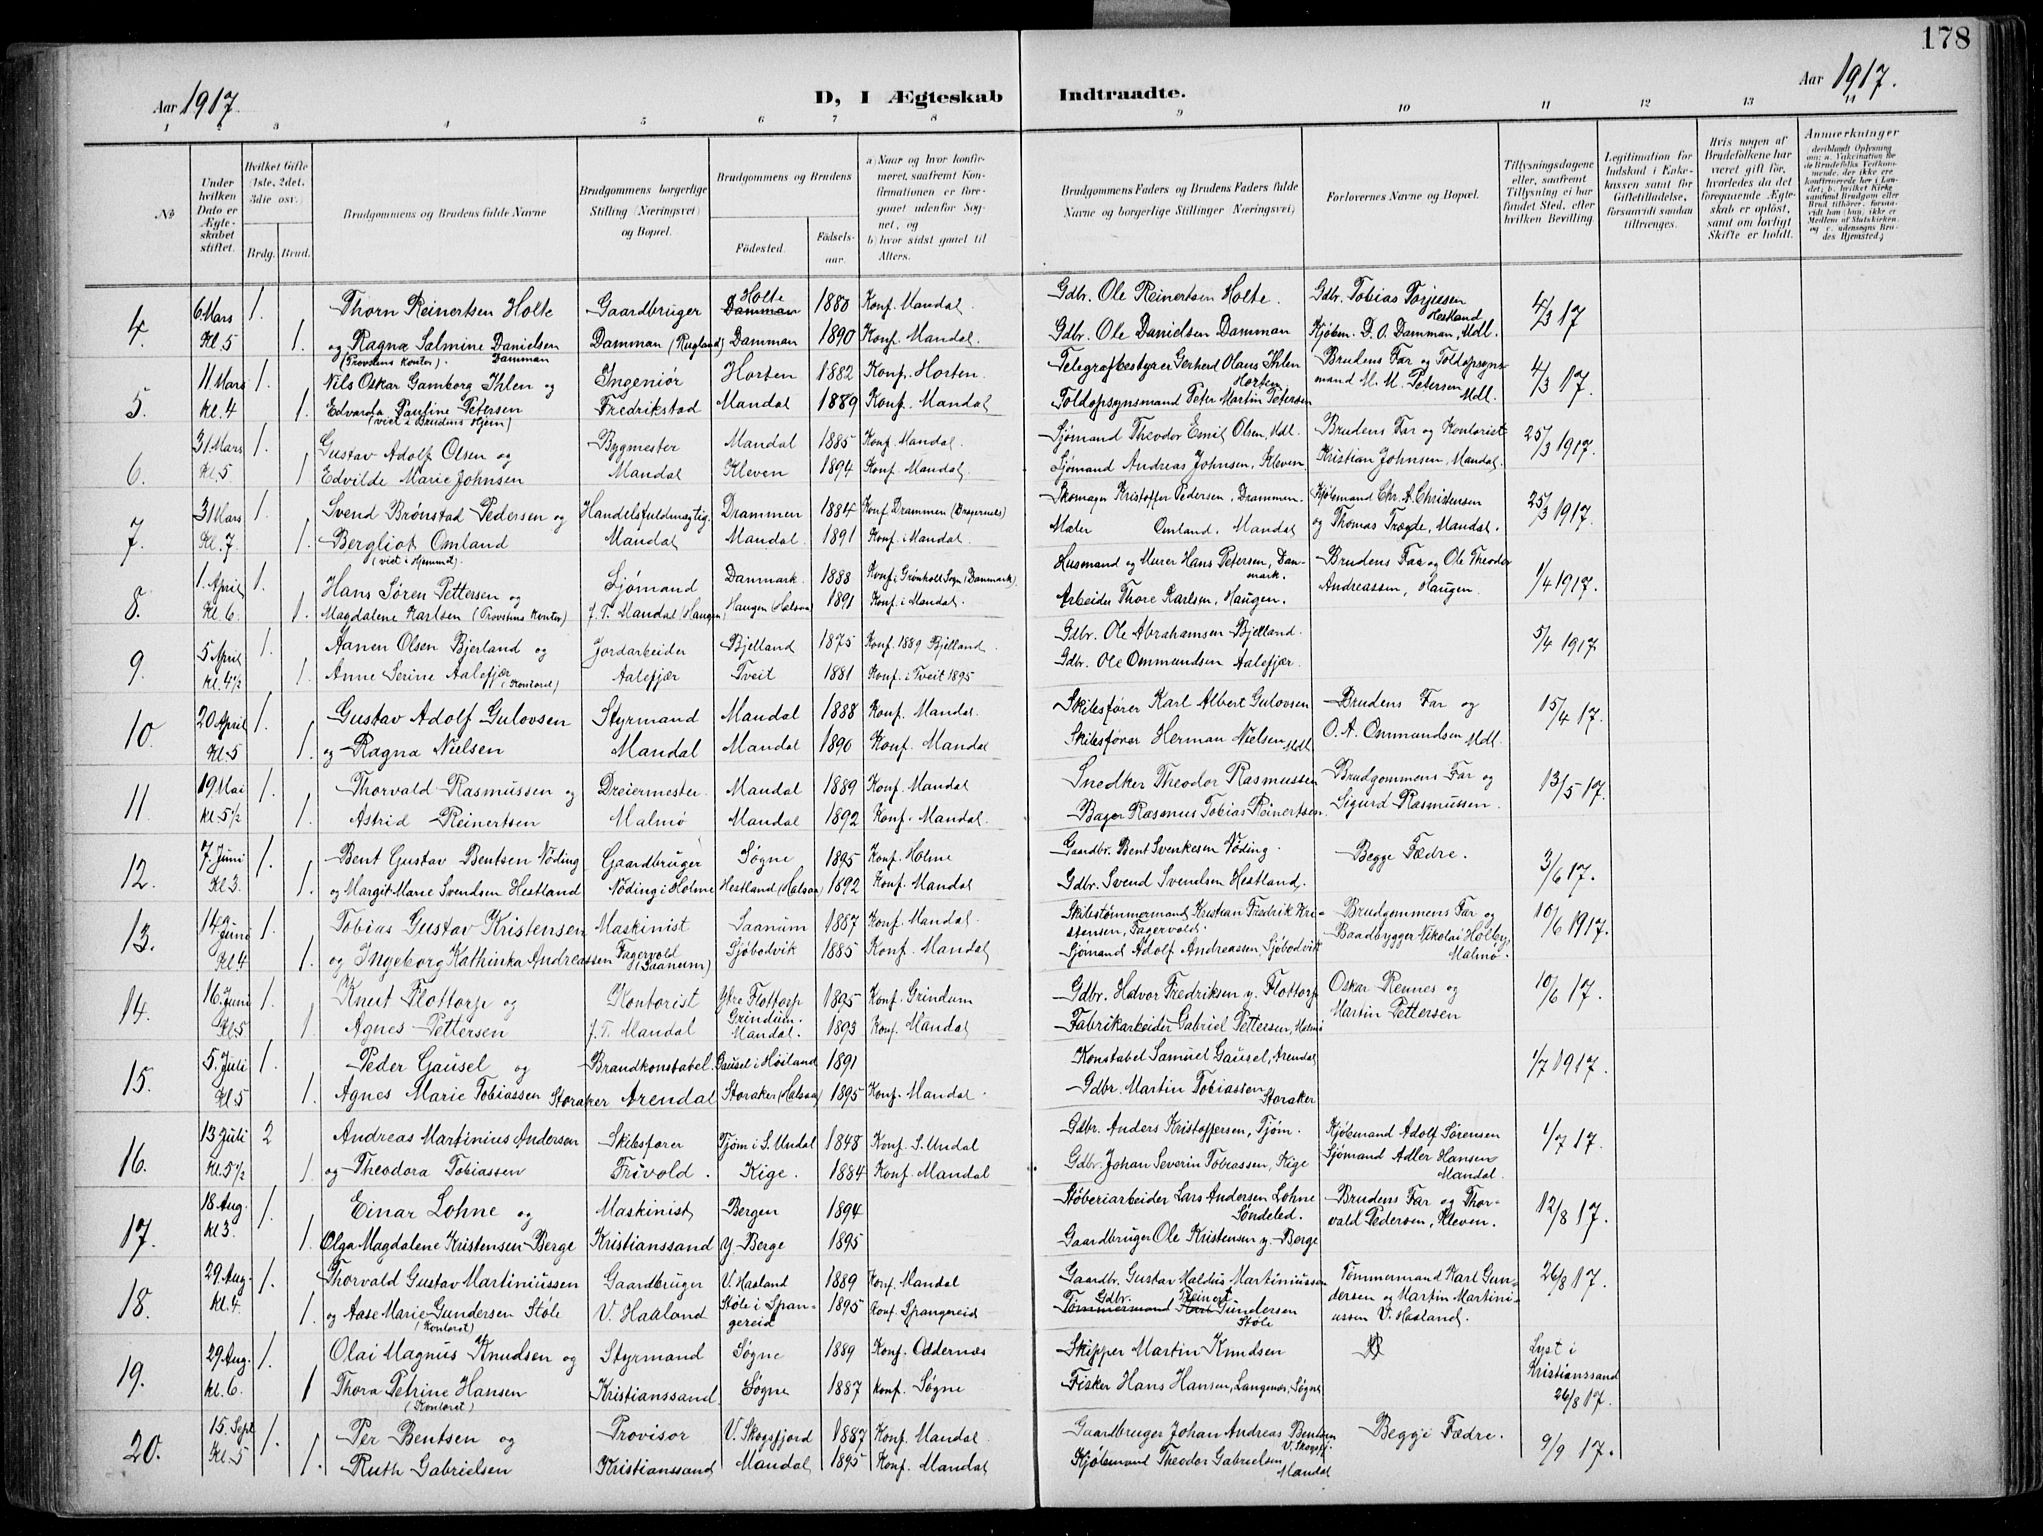 178
Aar 1917.
D, I Ægteskab Indtraadte.
Aar 1917.
1 2 3 4 5 6 7 8 9 10 11 12 13 14
No
Under hvilken Dato er Ægteskabet stiftet.
Hvilket Gifte (1ste, 2det, 3die osv.)
Brdg. Brud.
Brudgommens og Brudens fulde Navne
Brudgommens borgerlige Stilling (Næringsvei) og Bopæl.
Brudgommens og Brudens
Fødested. Fødselsaar.
a) Naar og hvor konfirmeret, saafremt Konfirmationen er foregaaet udenfor Sognet, og b) hvor sidst gaaet til Alters.
Brudgommens Faders og Brudens Faders fulde Navne og borgerlige Stillinger (Næringsvei)
Forlovernes Navne og Bopæl.
Tillysningsdagene eller, saafremt Tillysning ei har fundet Sted, efter hvilken Bevilling.
Legitimation for Indskud i Enkekassen samt for Giftetilladelse, forsaavidt saadan tiltrænges.
Hvis nogen af Brudefolkene har været gift før, hvorledes da det foregaaende Ægteskab er opløst, samt om lovligt Skifte er holdt.
Anmerkninger (deriblandt Oplysning om: a. Vakcination for de Brudefolks Vedkommende, der ikke ere konfirmerede her i Landet; b. hvilket Kirkesamfund Brudgom eller Brud tilhører, forsaavidt han (hun) ikke er Medlem af Statskirken, og c. udensogns Brudes Hjemsted.)
4. 6 Mars 1. Thorn Reinertsen Holte Gaardbruger Holte Damman 1880 Konf. Mandal. Gdbr. Ole Reinertsen Holte. Gdbr. Tobias Torjussen Hestland 4/3 17
Kl. 5 1. og Ragna Salmine Danielsen Damman Damman (Rugland) Damman 1890 Konf. Mandal. Gdbr. Ole Danielsen Damman Kjøbm. D. O. Damman, Mdl.
(Provstens Kontor).
5. 11 Mars 1. Nils Oskar Gamborg Ihlen og Ingeniør Horten 1882 Konf. Horten. Telegrafbestyrer Gerherd Olaus Ihlen Horten Brudens Far og Toldopsyns- 4/3 17.
Kl. 4 1. Edvarda Pauline Petersen Fredrikstad Mandal 1889 Konf. Mandal Toldopsynsmand Peter Martin Petersen mand M. M. Petersen Mdl.
(viet i Brudens Hjem)
6. 31 Mars 1. Gustav Adolf Olsen og Bygmester Mandal 1885 Konf. Mandal. Sjømand Theodor Emil Olsen, Mdl. Brudens Far og Kontorist 25/3 1917.
Kl. 5 1 Edvilde Marie Johnsen Mandal Kleven 1894 Konf. Mandal. Sjømand Andreas Johnsen, Kleven Kristian Johnsen, Mandal.
7. 31 Mars 1. Svend Brønstad Pedersen og Handelsfuldmægtig. Drammen 1884 Konf. Drammen (Bragernæs) Skomager Kristoffer Pedersen, Drammen. Kjøbmand Chr. A. Christensen 25/3 1917.
Kl. 7 1. Bergliot Omland Mandal Mandal. 1891 Konf. i Mandal. Maler Omland, Mandal og Thomas Trægde, Mandal.
(viet i Hjemmet)
8. 1. April 1. Hans Søren Pettersen og Sjømand Danmark. 1888 Konf. i Grønholt Sogn (Danmark). Husmand og Murer Hans Petersen, Danmark. Brudens Far og Ole Theodor 1/4 1917.
Kl. 6. 1. Magdalene Karlsen (Provstens Kontor) f. T. Mandal (Haugen) Haugen (Halsaa) 1891 Konf. i Mandal. Arbeider Thore Karlsen, Haugen. Andreassen, Haugen.
9. 5 April 1. Aanen Olsen Bjerland og Jordarbeider Bjelland 1875 Konf. 1889 Bjelland. Gdbr. Ole Abrahamsen Bjelland. 5/4 1917
Kl. 4½ 1. Anne Serine Aalefjær (Kontoret) Aalefjær Tveit 1881 Konf. i Tveit 1895 Gdbr. Ole Ommundsen Aalefjær.
10. 20 April 1. Gustav Adolf Gulovsen Styrmand Mandal 1888 Konf. Mandal. Skibsfører Karl Albert Gulovsen Brudens Far og 15/4 17.
Kl. 5 1. og Ragna Nielsen Mandal Mandal 1890 Konf. Mandal Skibsfører Herman Nielsen Mdl. O. A. Ommundsen Mdl.
11. 19 Mai 1. Thorvald Rasmussen og Dreiermester. Mandal 1889 Konf. Mandal Snedker Theodor Rasmussen Brudgommens Far og 13/5 17.
Kl. 5½ 1. Astrid Reinertsen Malmø Mandal 1892 Konf. Mandal. Bager Rasmus Tobias Reinertsen. Sigurd Rasmussen.
12. 7. Juni 1. Bent Gustav Bentsen Nøding Gaardbruger Søgne 1895 Konf. Holme Gaardbr. Bent Svenkesen Nøding. Begge Fædre. 3/6 17.
Kl 3. 1. og Margit Marie Svendsen Hestland Nøding i Holme Hestland (Halsaa) 1892 Konf. Mandal Gdbr. Svend Svendsen Hestland.
13. 14 Juni 1. Tobias Gustav Kristensen Maskinist Saanum 1887 Konf. Mandal. Skibstømmermand Kristian Fredrik Kristensen, Fagervold. Brudgommens Far og 10/6 1917.
Kl. 4 1. og Ingeborg Kathinka Andreassen Fagervold (Saanum) Sjøbodvik 1885 Konf. Mandal Sjømand Adolf Andreassen, Sjøbodvik Baadbygger Nikolai Holby, Malmø.
14. 16. Juni 1. Knut Flottorp og Kontorist Ytre Flottorp Grindum. 1895 Konf. Grindum Gdbr. Halvor Fredriksen y. Flottorp Oskar Rennes og 10/6 17.
Kl. 5 1 Agnes Pettersen f. T. Mandal Mandal. 1893 Konf. Mandal Fabrikarbeider Gabriel Pettersen, Malmø Martin Pettersen
15. 5. Juli 1. Peder Gausel og Brandkonstabel. Gausel i Høiland 1891 Konstabel Samuel Gausel, Arendal 1/7 1917.
Kl. 5 1. Agnes Marie Tobiassen Storaker Arendal Storaker (Halsaa) 1895 Konf. Mandal. Gdbr. Martin Tobiassen Storaker
16. 13 Juli 2 Andreas Martinius Andersen Skibsfører Tjøm i S. Undal 1848 Konf. S. Undal Gdbr. Anders Kristoffersen, Tjøm. Kjøbmand Adolf Sørensen 1/7 17.
Kl. 5½ 1. og Theodora Tobiassen Frivold. Kige. 1884 Konf. Mandal Gdbr. Johan Severin Tobiassen, Kige Sjømand Adler Hansen Mandal.
17. 18 Aug. 1. Einar Lohne og Maskinist Bergen 1894 Støberiarbeider Lars Andersen Lohne Søndeled. Brudens Far og Thor- 12/8 17.
Kl 3. 1. Olga Magdalene Kristensen Berge Kristianssand y Berge 1895 Gaardbruger Ole Kristensen y. Berge vald Pedersen, Kleven.
18. 29. Aug. 1. Thorvald Gustav Martiniussen Gaardbruger V. Haaland 1889 Konf. Mandal Gaardbr. Gustav Haldus Martiniussen Tømmermand Karl Gun- 26/8 17.
Kl. 4. 1. og Aase Marie Gundersen Støle V. Haaland Støle i Spangereid 1895 Konf. Spangereid Gdbr. Tømmermand Reinert Karl Gundersen Støle dersen og Martin Martiniussen V. Haaland.
(Kontoret)
19. 29 Aug. 1. Olai Magnus Knudsen og Styrmand Søgne 1889 Konf. Oddernæs Skipper Martin Knudsen Lyst i Kristianssand 26/8 17.
Kl. 6. 1 Thora Petrine Hansen Kristianssand Søgne 1887 Konf. Søgne Fisker Hans Hansen, Langenes, Søgne
(Kontoret)
20. 15. Sept 1. Per Bentsen og Provisor V. Skogsfjord 1887 Konf. Mandal. Gaardbruger Johan Andreas Bentsen V. Skogsfj. Begge Fædre. 9/9 17.
Kl. 5 1. Ruth Gabrielsen Kristianssand Mandal 1895 Konf. Mandal Kjøbmand Theodor Gabrielsen, Mandal